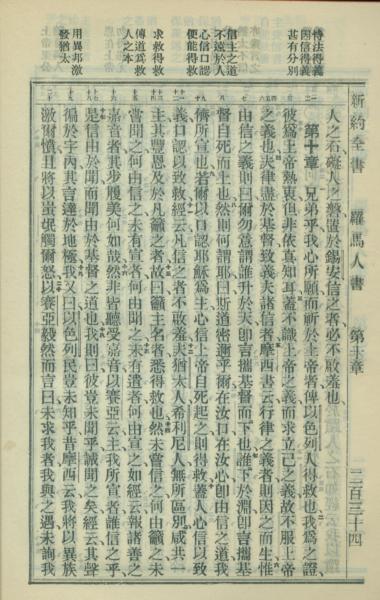 新約全書 羅馬人書 第十章 二百三十四
恃法得義
因信得義
甚有分別
信主之道
不遠於人
心信口認
便能得救
求救得救
傳道爲救
人之本
用異邦激
發猶太
人之石礙人之磐置於錫安信之者必不啟羞也
第十章 兄弟乎我心所願而祈於上帝者俾以色列人得救也我爲之證
彼爲上帝熱衷但非依真知耳蓋不識上帝之義而求立己之義故不服上帝
之義也夫律盡於基督致義夫諸信者摩西書云行律之義者則因之而生惟
由信之義則曰爾勿意謂誰升於天卽言攜基督而下也誰下於淵卽言攜基
督自死而上也然則何謂耶曰斯道密邇乎爾在汝口在汝心卽由信之道我
儕所宣也若爾以口認耶穌爲主心信上帝自死起之則得救蓋人心信以致
義口認以致救經云凡信之者不啟羞夫猶太人希利尼人無所區別咸共一
主其豐恩及於凡籲之者故曰籲主名者悉得救也然未嘗信之何由籲之未
嘗聞之何由信之未有宣者何由聞之未有遣者何由宣之如經云報諸善之
嘉音者其步履美何如哉然非皆聽受嘉音以賽亞云主我所宣者誰信之乎
是信由於聞而聞由於基督之道也我則曰彼豈未聞乎誠聞之矣經云其聲
徧於宇內其言達於地極我又曰以色列民豈未知乎昔摩西云我將以異族
激爾憤且將以蚩氓觸爾怒以賽亞毅然而言曰未求我者我與之遇未詢我